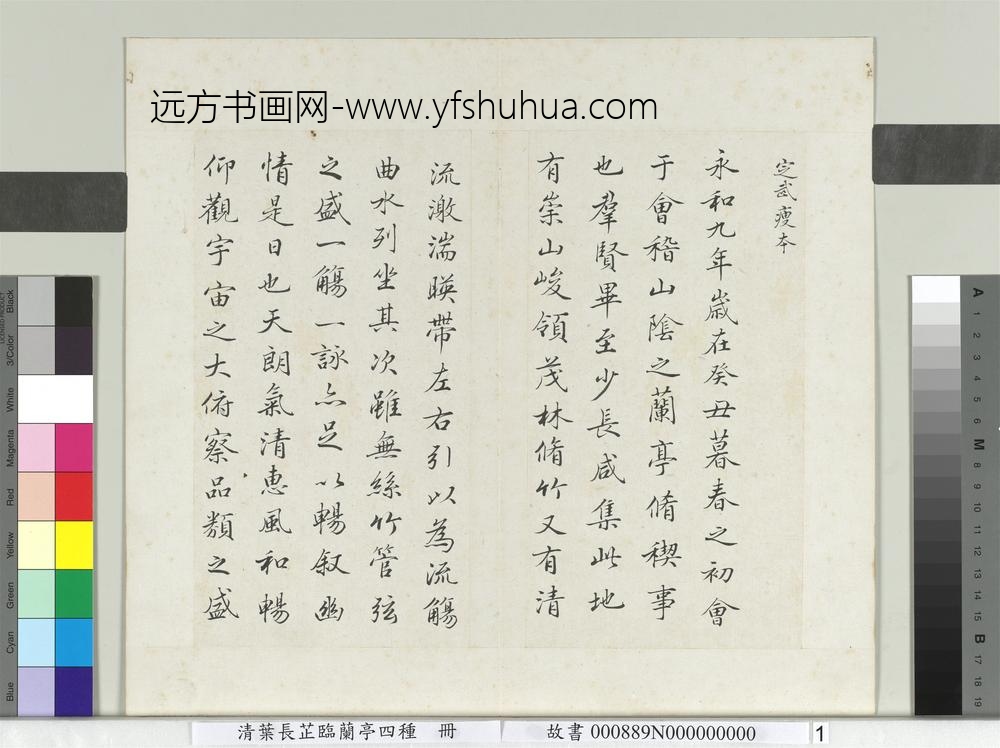 远方书画网-www.yfshuhua.com
定武瘦本
永和九年歲在癸丑暮春之初會
于會稽山陰之蘭亭脩稧事
也羣賢畢至少長咸集此地
有崇山峻領茂林脩竹又有清
流激湍暎帶左右引以為流觴
曲水列坐其次雖無絲竹管弦
之盛一觴一詠亦足以暢叙幽
情是日也天朗氣清惠風和暢
仰觀宇宙之大俯察品類之盛
Black
3/Color
White
Magenta
Red
Yellow
Green
Cyan
Blue
A 1 2 3 4 5 6 M 8 9 10 11 12 13 14 15 B 17 18 19
清葉長芷臨蘭亭四種 冊
故書 000889N000000000
1